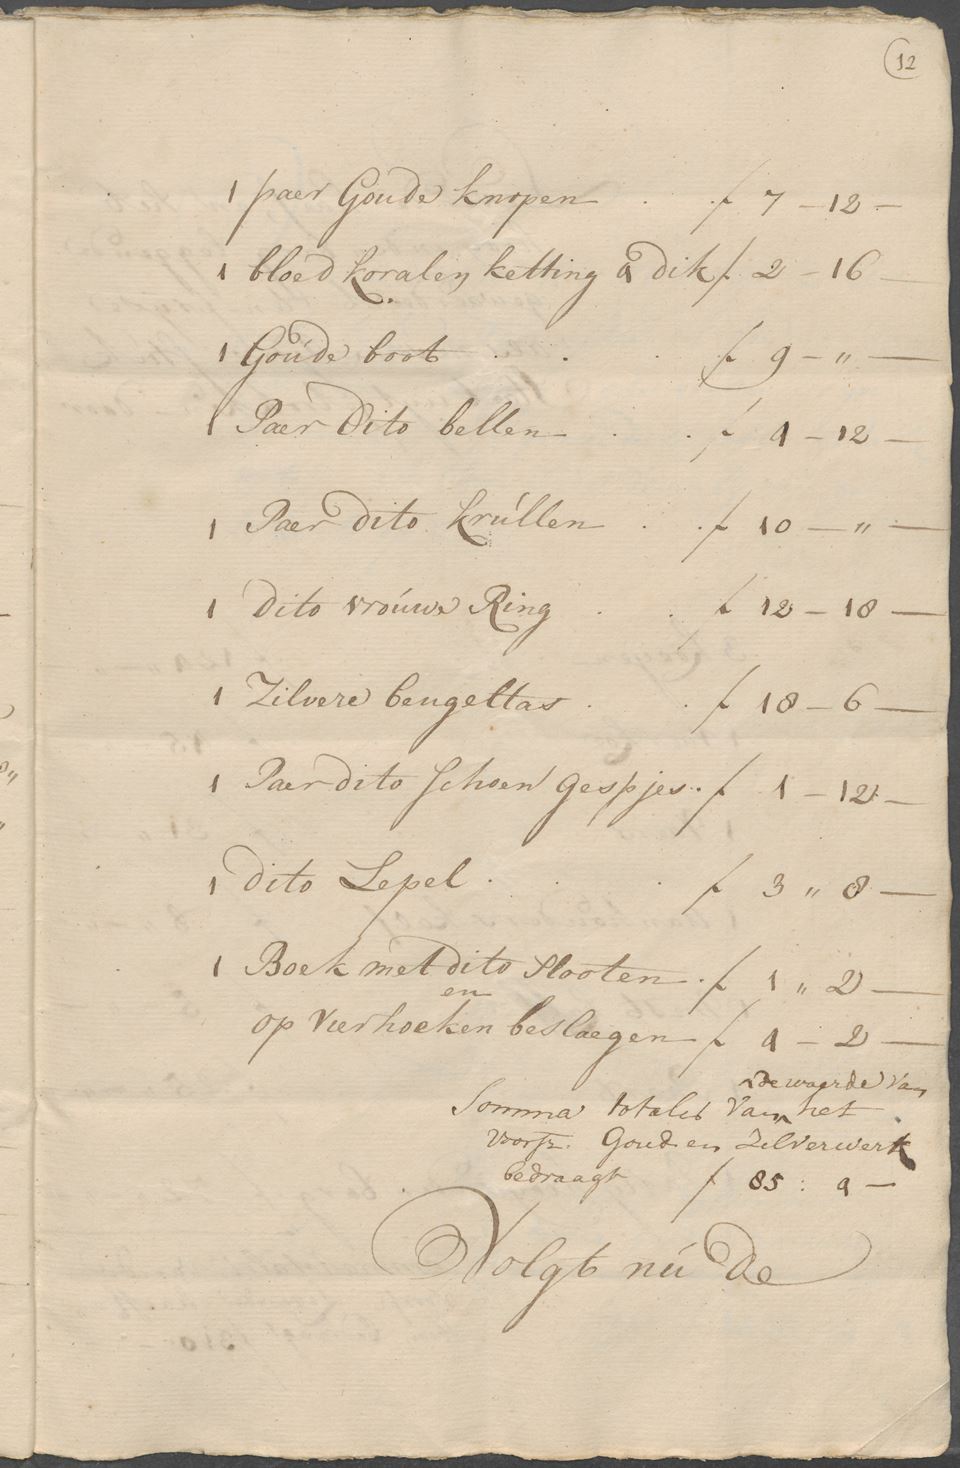 12
1 paer Goude knopen . . f 7 - 12 -
1 bloed koralen ketting a dik f 2 - 16 -
1 Goude boot . . . f 9 - " -
1 Paer Dito bellen - . . f 4 - 12 -
1 Paer dito krúllen . . f 10 - " -
1 dito vroúwe Ring . . f 12 - 18 -
1 Zilvere beugeltas . . f 18 - 6 -
1 Paer dito schoen gespjes . f 1 - 12 -
1 dito Lepel . . . f 3 " 8 -
1 Boek met dito slooten . f 1 " 2 -
en
op vier hoeken beslaegen f 4 - 2 -
de waerde van
Somma totalis van het
voorsz. Goud en Zilverwerk
bedraagt f 85 : 4 -
Volgt nú de